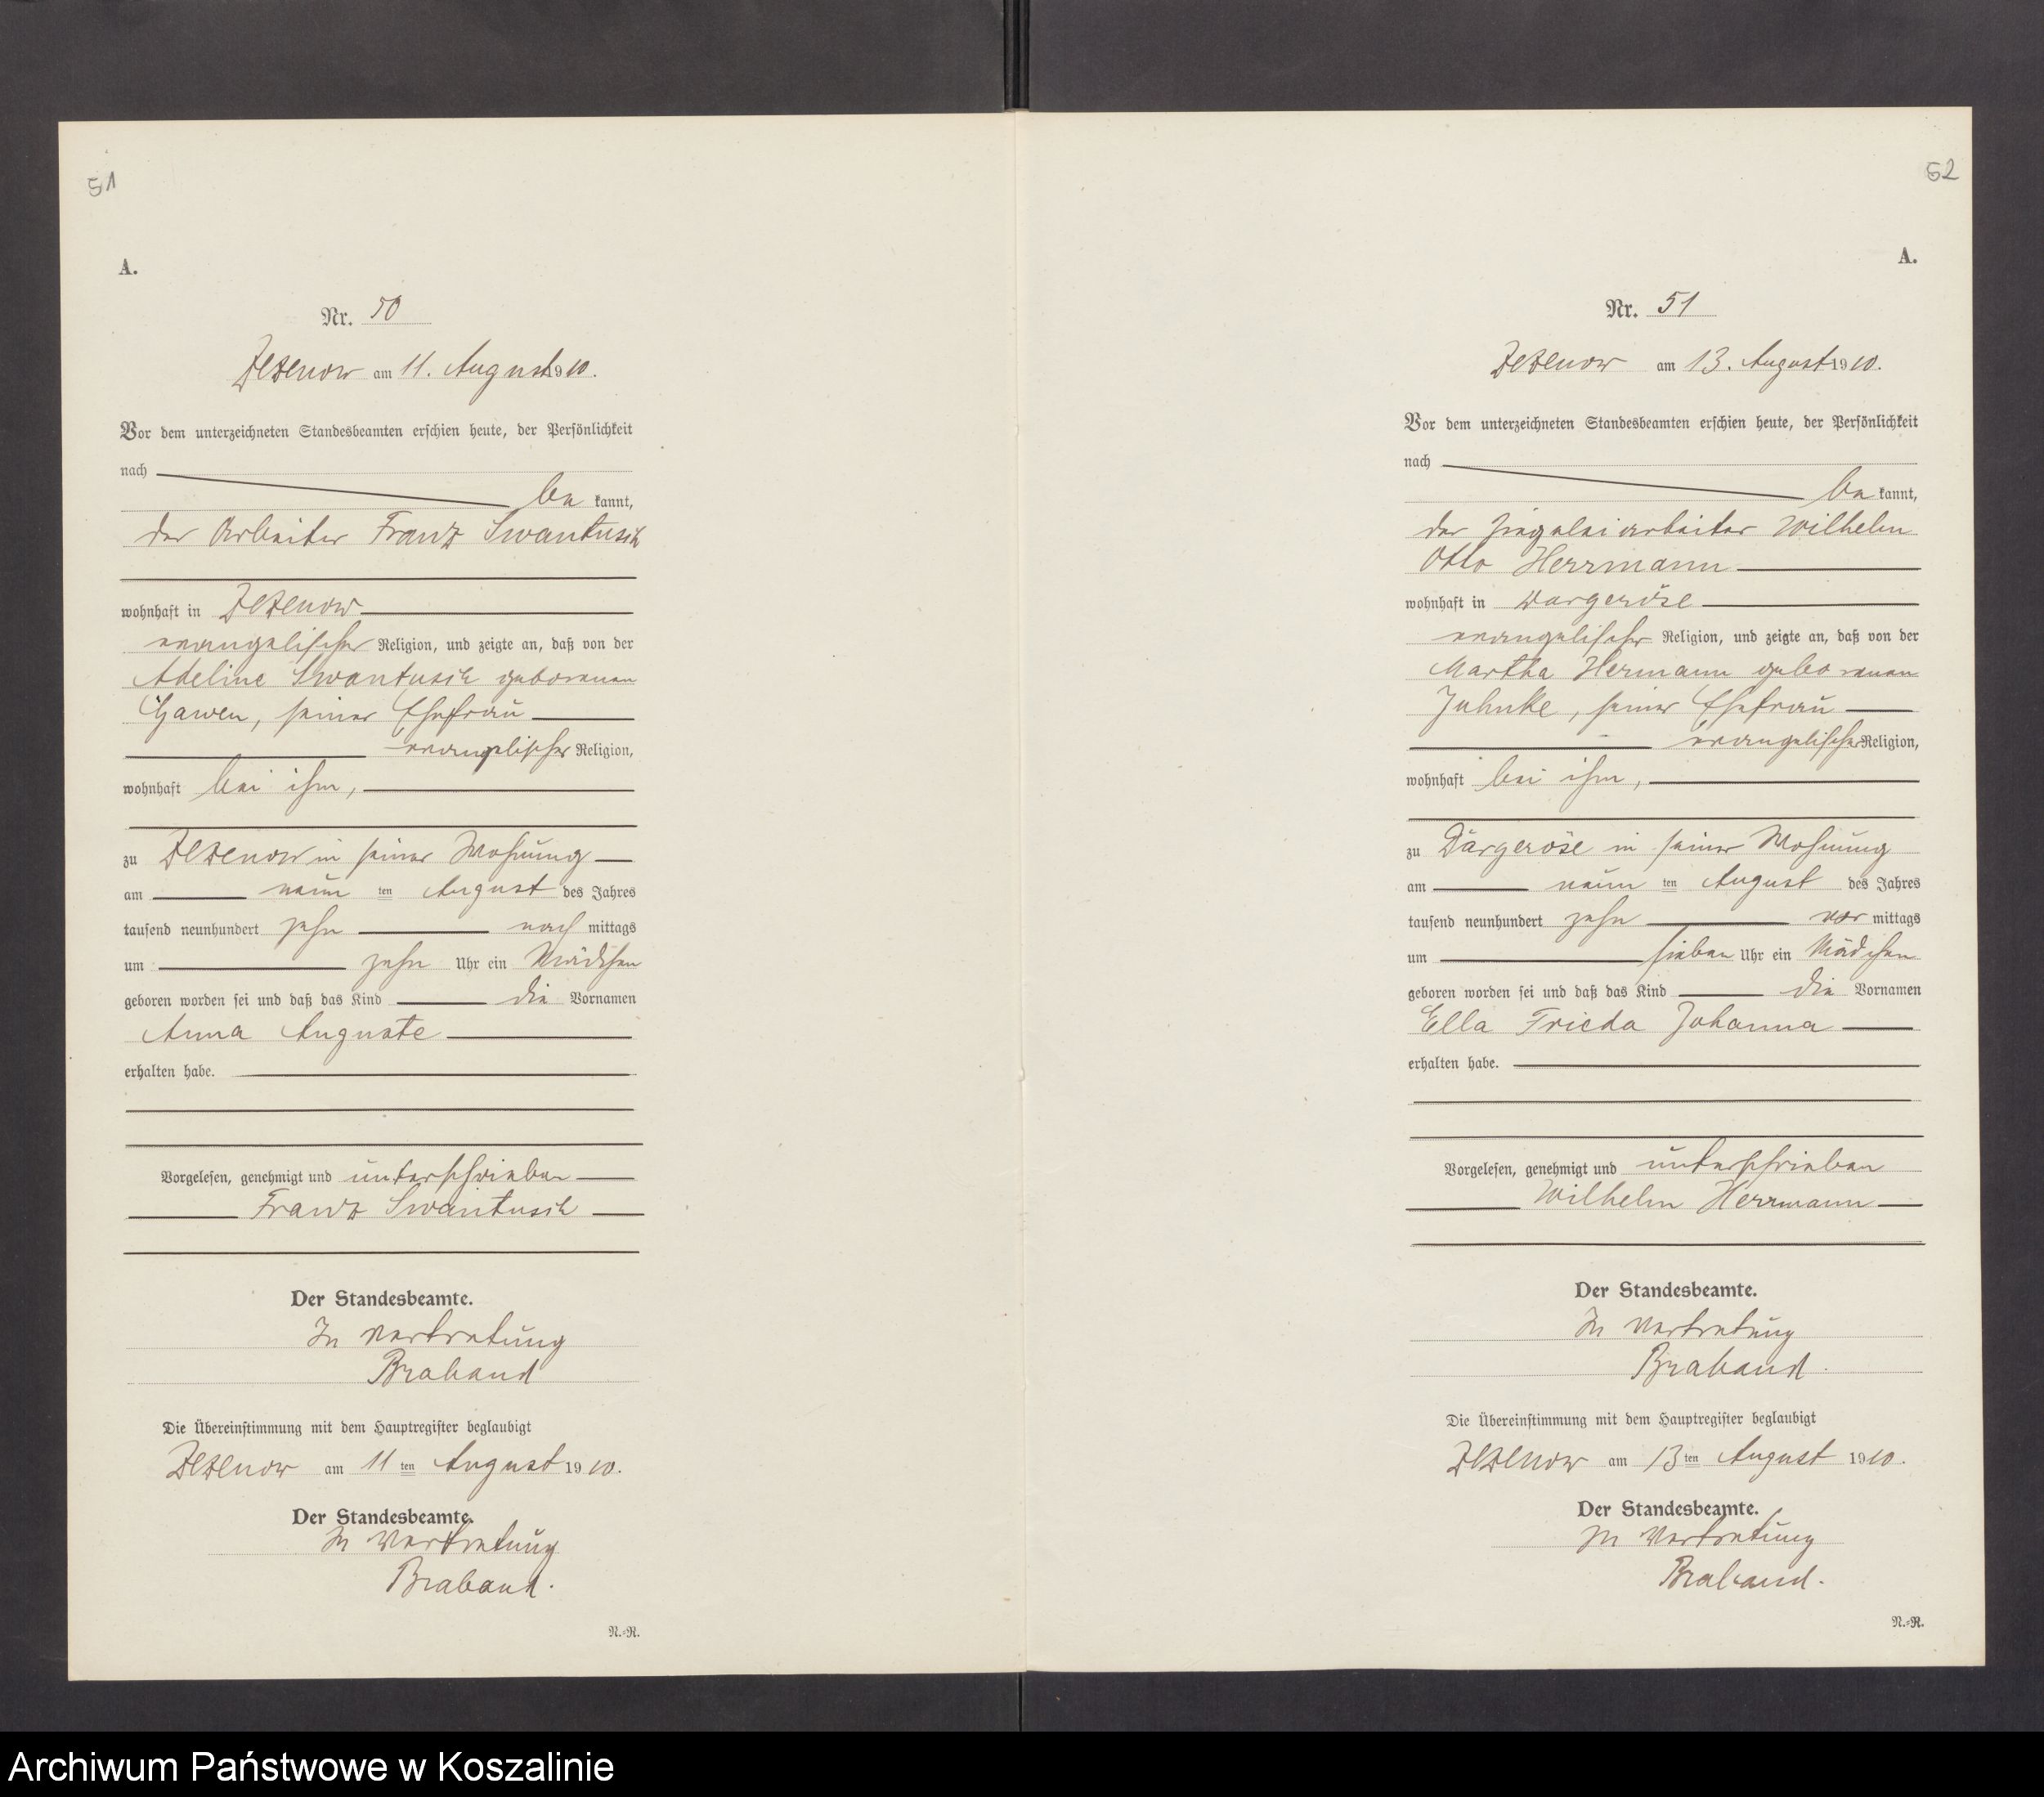 51
A.
Nr. 50
Zezenow am 11. August 1910.
Vor dem unterzeichneten Standesbeamten erschien heute, der Persönlichkeit
nach
be kannt,
der Arbeiter Franz Swantusch
wohnhaft in Zezenow
evangelischer Religion, und zeigte an, daß von der
Adeline Swantusch geborenen
Gawen, seiner Ehefrau
evangelischer Religion,
wohnhaft bei ihm,
zu Zezenow in seiner Wohnung
am neun ten August des Jahres
tausend neunhundert zehn nach mittags
um zehn Uhr ein Mädchen
geboren worden sei und daß das Kind die Vornamen
Anna Auguste
erhalten habe.
Vorgelesen, genehmigt und unterschrieben
Franz Swantusch
Der Standesbeamte.
In Vertretung
Braband
Die Übereinstimmung mit dem Hauptregister beglaubigt
Zezenow am 11 ten August 1910.
Der Standesbeamte.
In Vertretung
Braband.
N.-R.
52
A.
Nr. 51
Zezenow am 13. August 1910.
Vor dem unterzeichneten Standesbeamten erschien heute, der Persönlichkeit
nach
be kannt,
der Ziegeleiarbeiter Wilhelm
Otto Herrmann
wohnhaft in Dargeröse
evangelischer Religion, und zeigte an, daß von der
Martha Hermann geborenen
Juhnke, seiner Ehefrau
evangelischer Religion,
wohnhaft bei ihm,
zu Dargeröse in seiner Wohnung
am neun ten August des Jahres
tausend neunhundert zehn vor mittags
um sieben Uhr ein Mädchen
geboren worden sei und daß das Kind die Vornamen
Ella Frieda Johanna
erhalten habe.
Vorgelesen, genehmigt und unterschrieben
Wilhelm Herrmann
Der Standesbeamte.
In Vertretung
Braband.
Die Übereinstimmung mit dem Hauptregister beglaubigt
Zezenow am 13 ten August 1910.
Der Standesbeamte.
In Vertretung
Braband.
N.-R.
Archiwum Państwowe w Koszalinie